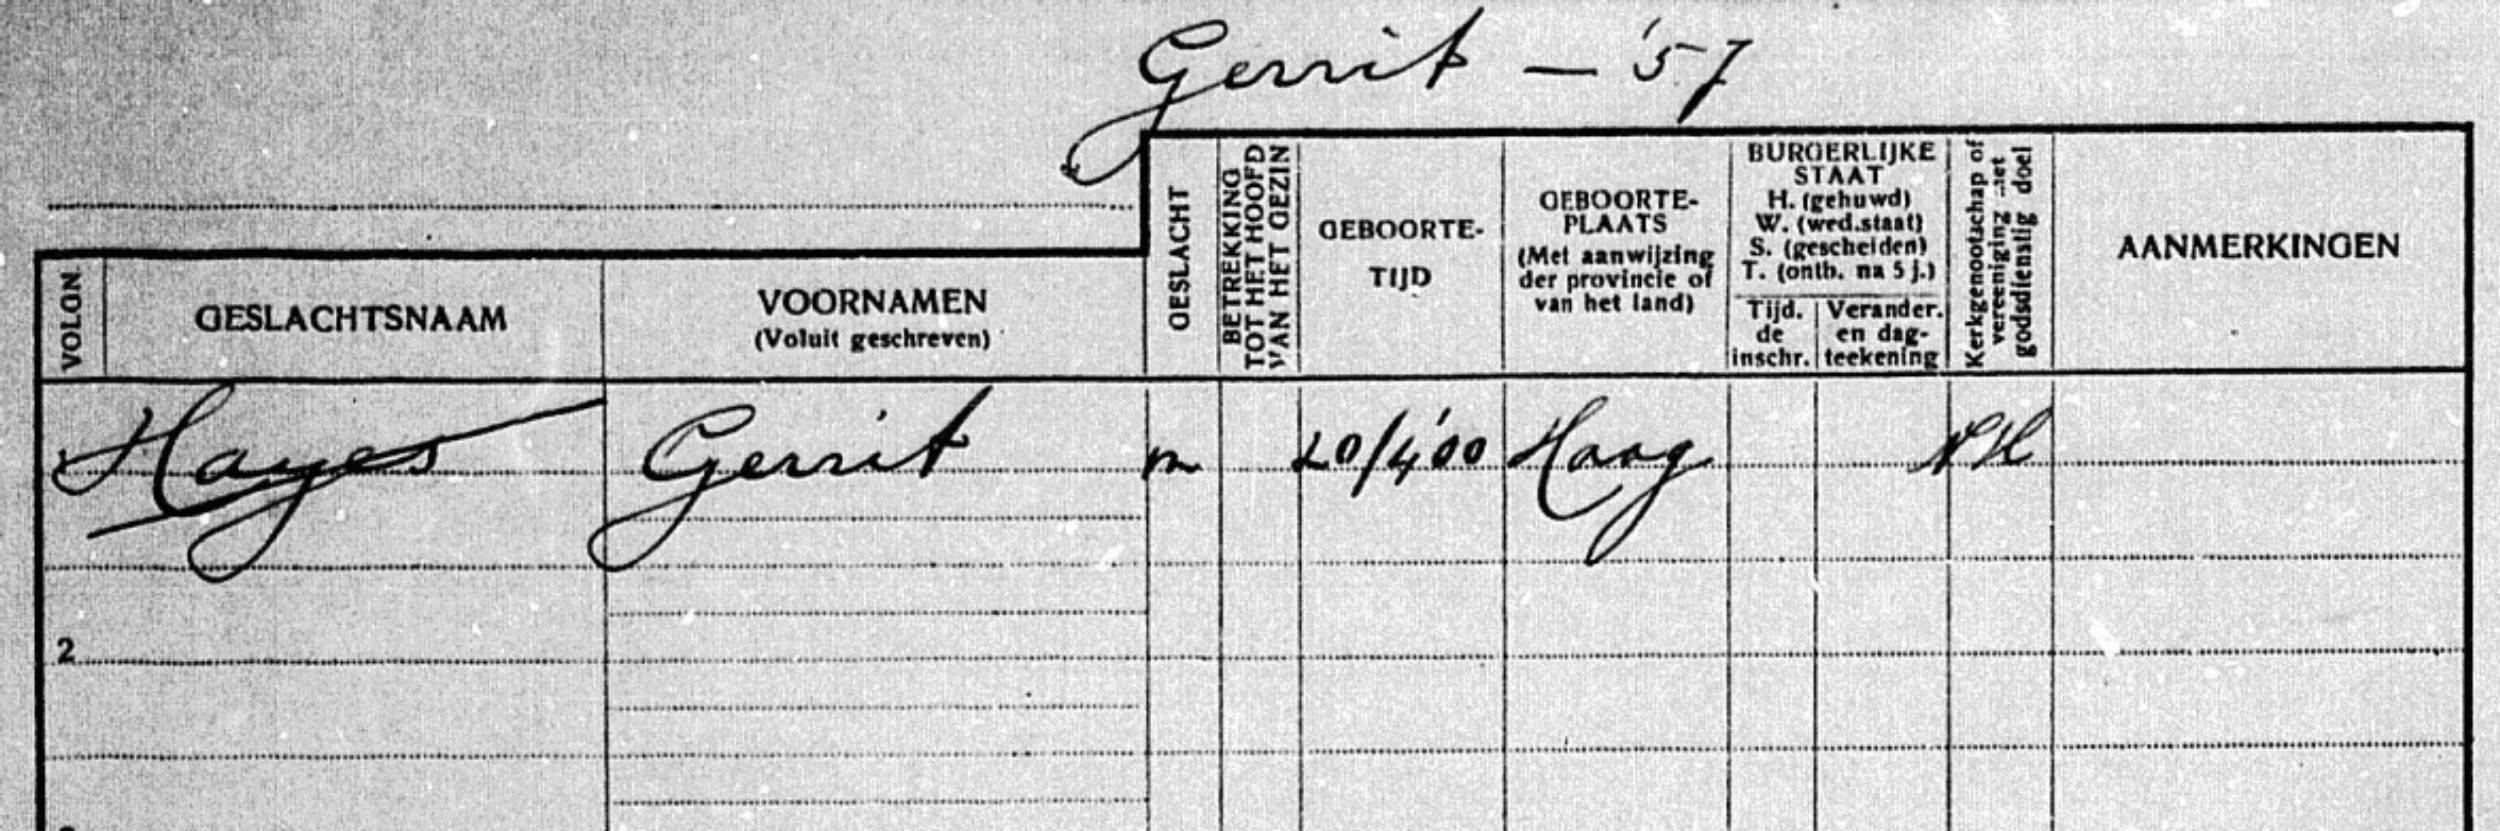 Gerrit - '57
VOLGN
GESLACHTSNAAM
VOORNAMEN
(Voluit geschreven)
GESLACHT
BETREKKING
TOT HET HOOFD
VAN HET GEZIN
GEBOORTE-
TIJD
GEBOORTE-
PLAATS
(Met aanwijzing
der provincie of
van het land)
BURGERLIJKE
STAAT
H. (gehuwd)
W. (wed.staat)
S. (gescheiden)
T. (ontb. na 5 j.)
Tijd.
de
inschr.
Verander.
en dag-
teekening
Kerkgenootschap of
vereeniging met
godsdienstig doel
AANMERKINGEN
Hayes Gerrit m 20/4'00 Haag NH
2